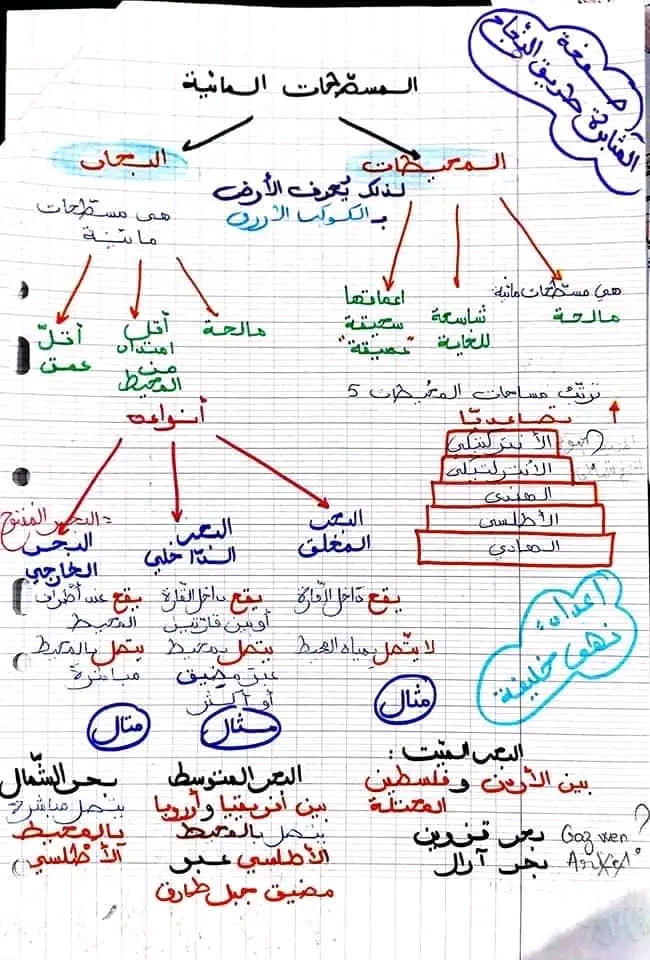 صفحة
المثابرة طريق النجاح
المسطحات المائية
المحيطات
البحار
لذلك يعرف الأرض
بـ الكوكب الأزرق
هي مسطحات
مائية
هي مسطحات مائية
مالحة
شاسعة
للغاية
اعماقها
سحيقة
"عميقة"
مالحة
أقل
امتداد
من
المحيط
أقلّ
عمق
ترتيب مساحات المحيطات 5
تصاعديّا
الأنتركتيكي
الهندي
الأطلسي
الهادي
أنواعه
البحر
المغلق
البحر
الدّاخلي
= البحر المفتوح
البحر
الخارجي
يقع داخل القارة
لا يتّصل بمياه المحيط
يقع داخل القارة
أو بين قارتين
يتصل بمحيط
عبر مضيق
أو أكثر
يقع عند أطراف
المحيط
يتصل بالمحيط
مباشرة
اعداد:
نهى خليفة
مثال
مثال
مثال
البحر الميّت:
بين الأردن و فلسطين
المحتلة
بحر قزوين
بحر آرال
البحر المتوسط
بين افريقيا و أروبا
يتصل بالمحيط
الأطلسي عبر
مضيق جبل طارق
بحر الشّمال
يتصل مباشرة
بالمحيط
الأطلسي